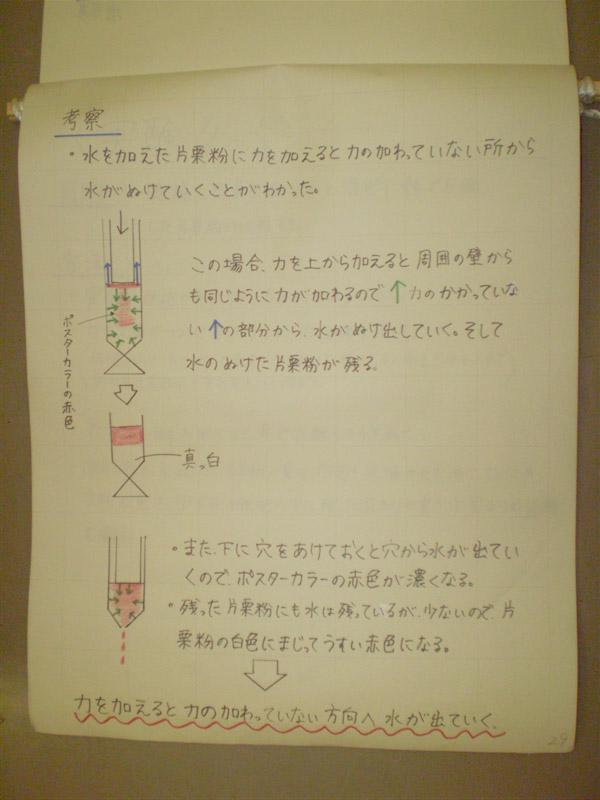 考察
・水を加えた片栗粉に力を加えると力の加わっていない所から
水がぬけていくことがわかった。
この場合、力を上から加えると周囲の壁から
も同じように力が加わるので↑力のかかっていな
い↑の部分から、水がぬけ出していく。そして
水のぬけた片栗粉が残る。
ポスターカラーの赤色
真っ白
・また、下に穴をあけておくと穴から水が出てい
くので、ポスターカラーの赤色が濃くなる。
・残った片栗粉にも水は残っているが、少ないので、片
栗粉の白色にまじってうすい赤色になる。
力を加えると力の加わっていない方向へ水が出ていく。
29